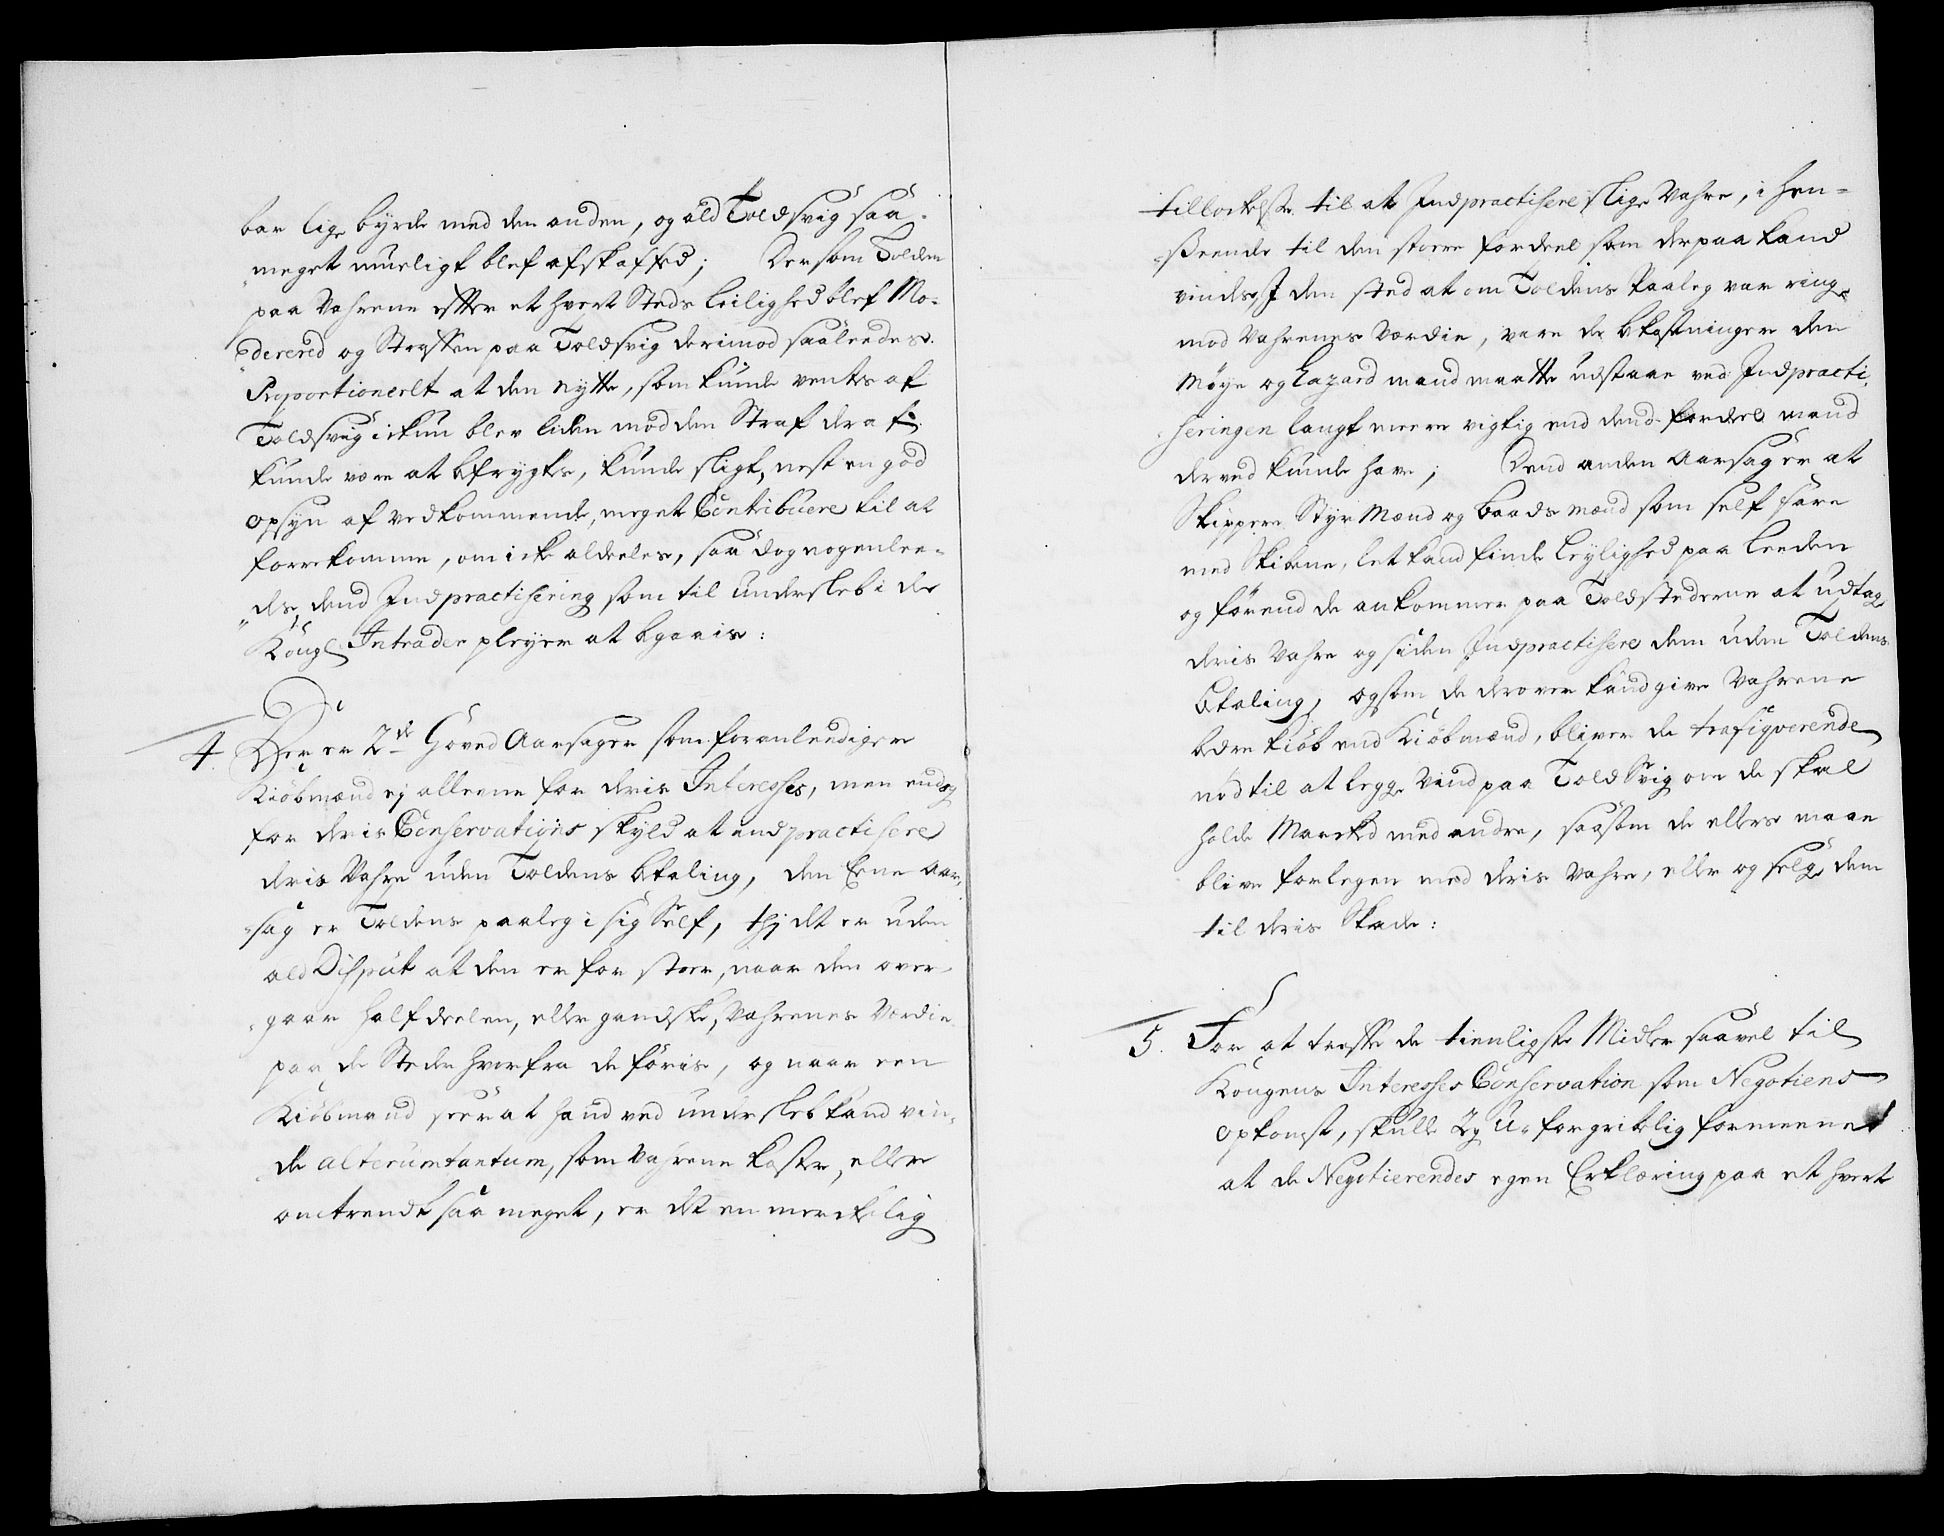 bar lige byrde med den anden, og ald Toldsvig saa
meget mueligt blef afskaffed; Dersom Tolden
paa Vahrene efter et hvert Steds leilighed blef Mo-
derered og Straffen paa Toldsvig derimod saaleedes
Proportionerlt at den nytte, som kunde ventes af
Toldsvig ickun blev liden mod den Straf der af
kunde være at befrygte, kunde sligt, nest en god
opsyn af vedkommende, meget Contribuere til at
forrekomme, om icke aldeeles, saa dog nogenlee-
des, dend Indpractisering som til undersleb i de
Kongl Intrader pleyer at begaais:
4. Der er 2de Hoved Aarsager som foranleediger
Kiøbmænd ej alleene for deris Interesse, men endog
for deris Conservations skyld at indpractisere
deris Vahre uden Toldens betaling, den Eene Aar-
sag er Toldens paaleg i sig Self, thj det er uden
ald Disput at den er for stoer, naar den over-
gaar halfdeelen, eller gandske, Vahrenes Værdie
paa de Steder hvorfra de føris, og naar een
Kiøbmand seer at hand ved undersleb kand vin-
de alterumtantum, som Vahrene koster, eller
omtrendt saa meget, er det en merckelig
tillockelse til at Indpractisere slige Vahre, i hen-
seende til den store fordeel som derpaa kand
vindes, J den sted at om Toldens Paaleg var ringe
mod Vahrenes Værdie, vare de bekostninger den
Møye og Hazard mand maatte udstaae ved Indpracti-
seringen langt meere vigtig end dend fordeel mand
derved kunde have; Dend anden Aarsag er at
Skippere, Styr Mænd og baads mænd som self fare
med Skibene, let kand finde leylighed paa leeden
og førend de ankommer paa Toldstederne at udtage
deris Vahre og siden Indpractisere dem uden Toldens
betaling, og som de derover kand give Vahrene
bedre kiøb end Kiøbmænd, bliver de trafiqverende
nød til at legge Vind paa Told Svig om de skal
holde Marcked med andre, saasom de ellers maae
blive forlegen med deris Vahre, eller og selge dem
til deris Skade:
5. For at treffe de tienligste Midler saavel til
Kongens Interesses Conservation som Negotiens
opkomst, skulle Jeg u-forgribelig formeene
at de Negotierendes egen Erklæring paa et hvert